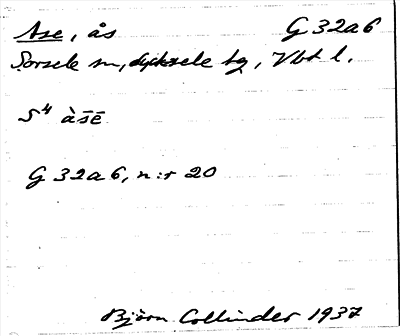 Ase, ås G 32a6
Sorsele sn, Lycksele tg, Vbt l.
S⁴ àsē
G 32a6, n:r 20
Björn Collinder 1937